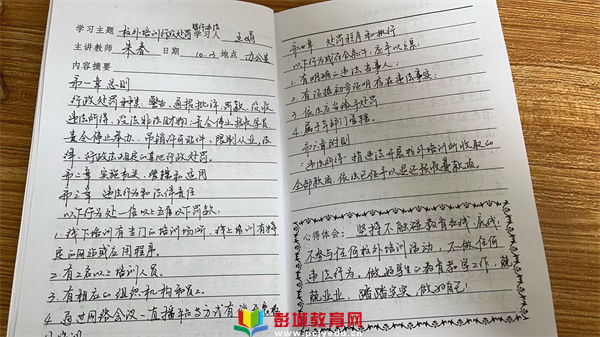 学习主题 校外培训行政处罚暂行办法 学习人
主讲教师 朱春 日期 10.3 地点 办公室
内容摘要
第一章 总则
行政处罚种类:警告,通报批评,罚款,没收
违法所得,没收非法财物;责令停止招收学员
责令停止举办、吊销许可证件,限制从业,法
律、行政法规定的其他行政处罚。
第二章 实施机关、管辖和适用
第三章 违法行为和法律责任
以下行为处一倍以上五倍以下罚款。
1.线下培训有专门的培训场所,线上培训有特
定的网站或应用程序。
2.有2名以上培训人员。
3.有相应的组织机构和分工。
4.通过网络会议、直播平台方式有
第四章 处罚程序和执行
以下行为或符合条件,应予以立案:
1.有明确的违法当事人;
2.有证据初步证明存在违法事实;
3.依法应当给予处罚
4.属于本部门管辖。
第六章 附则
违法所得,指违法开展校外培训所收取的
全部款项,依法已经予以退还
心得体会:
坚持不触碰教育红线、底线,
不参与任何校外培训活动,不做任何
违法行为,做好学生的教育教学工作,兢
兢业业,踏踏实实,做好自己!
彭城教育网
www.pcjyedu.cn